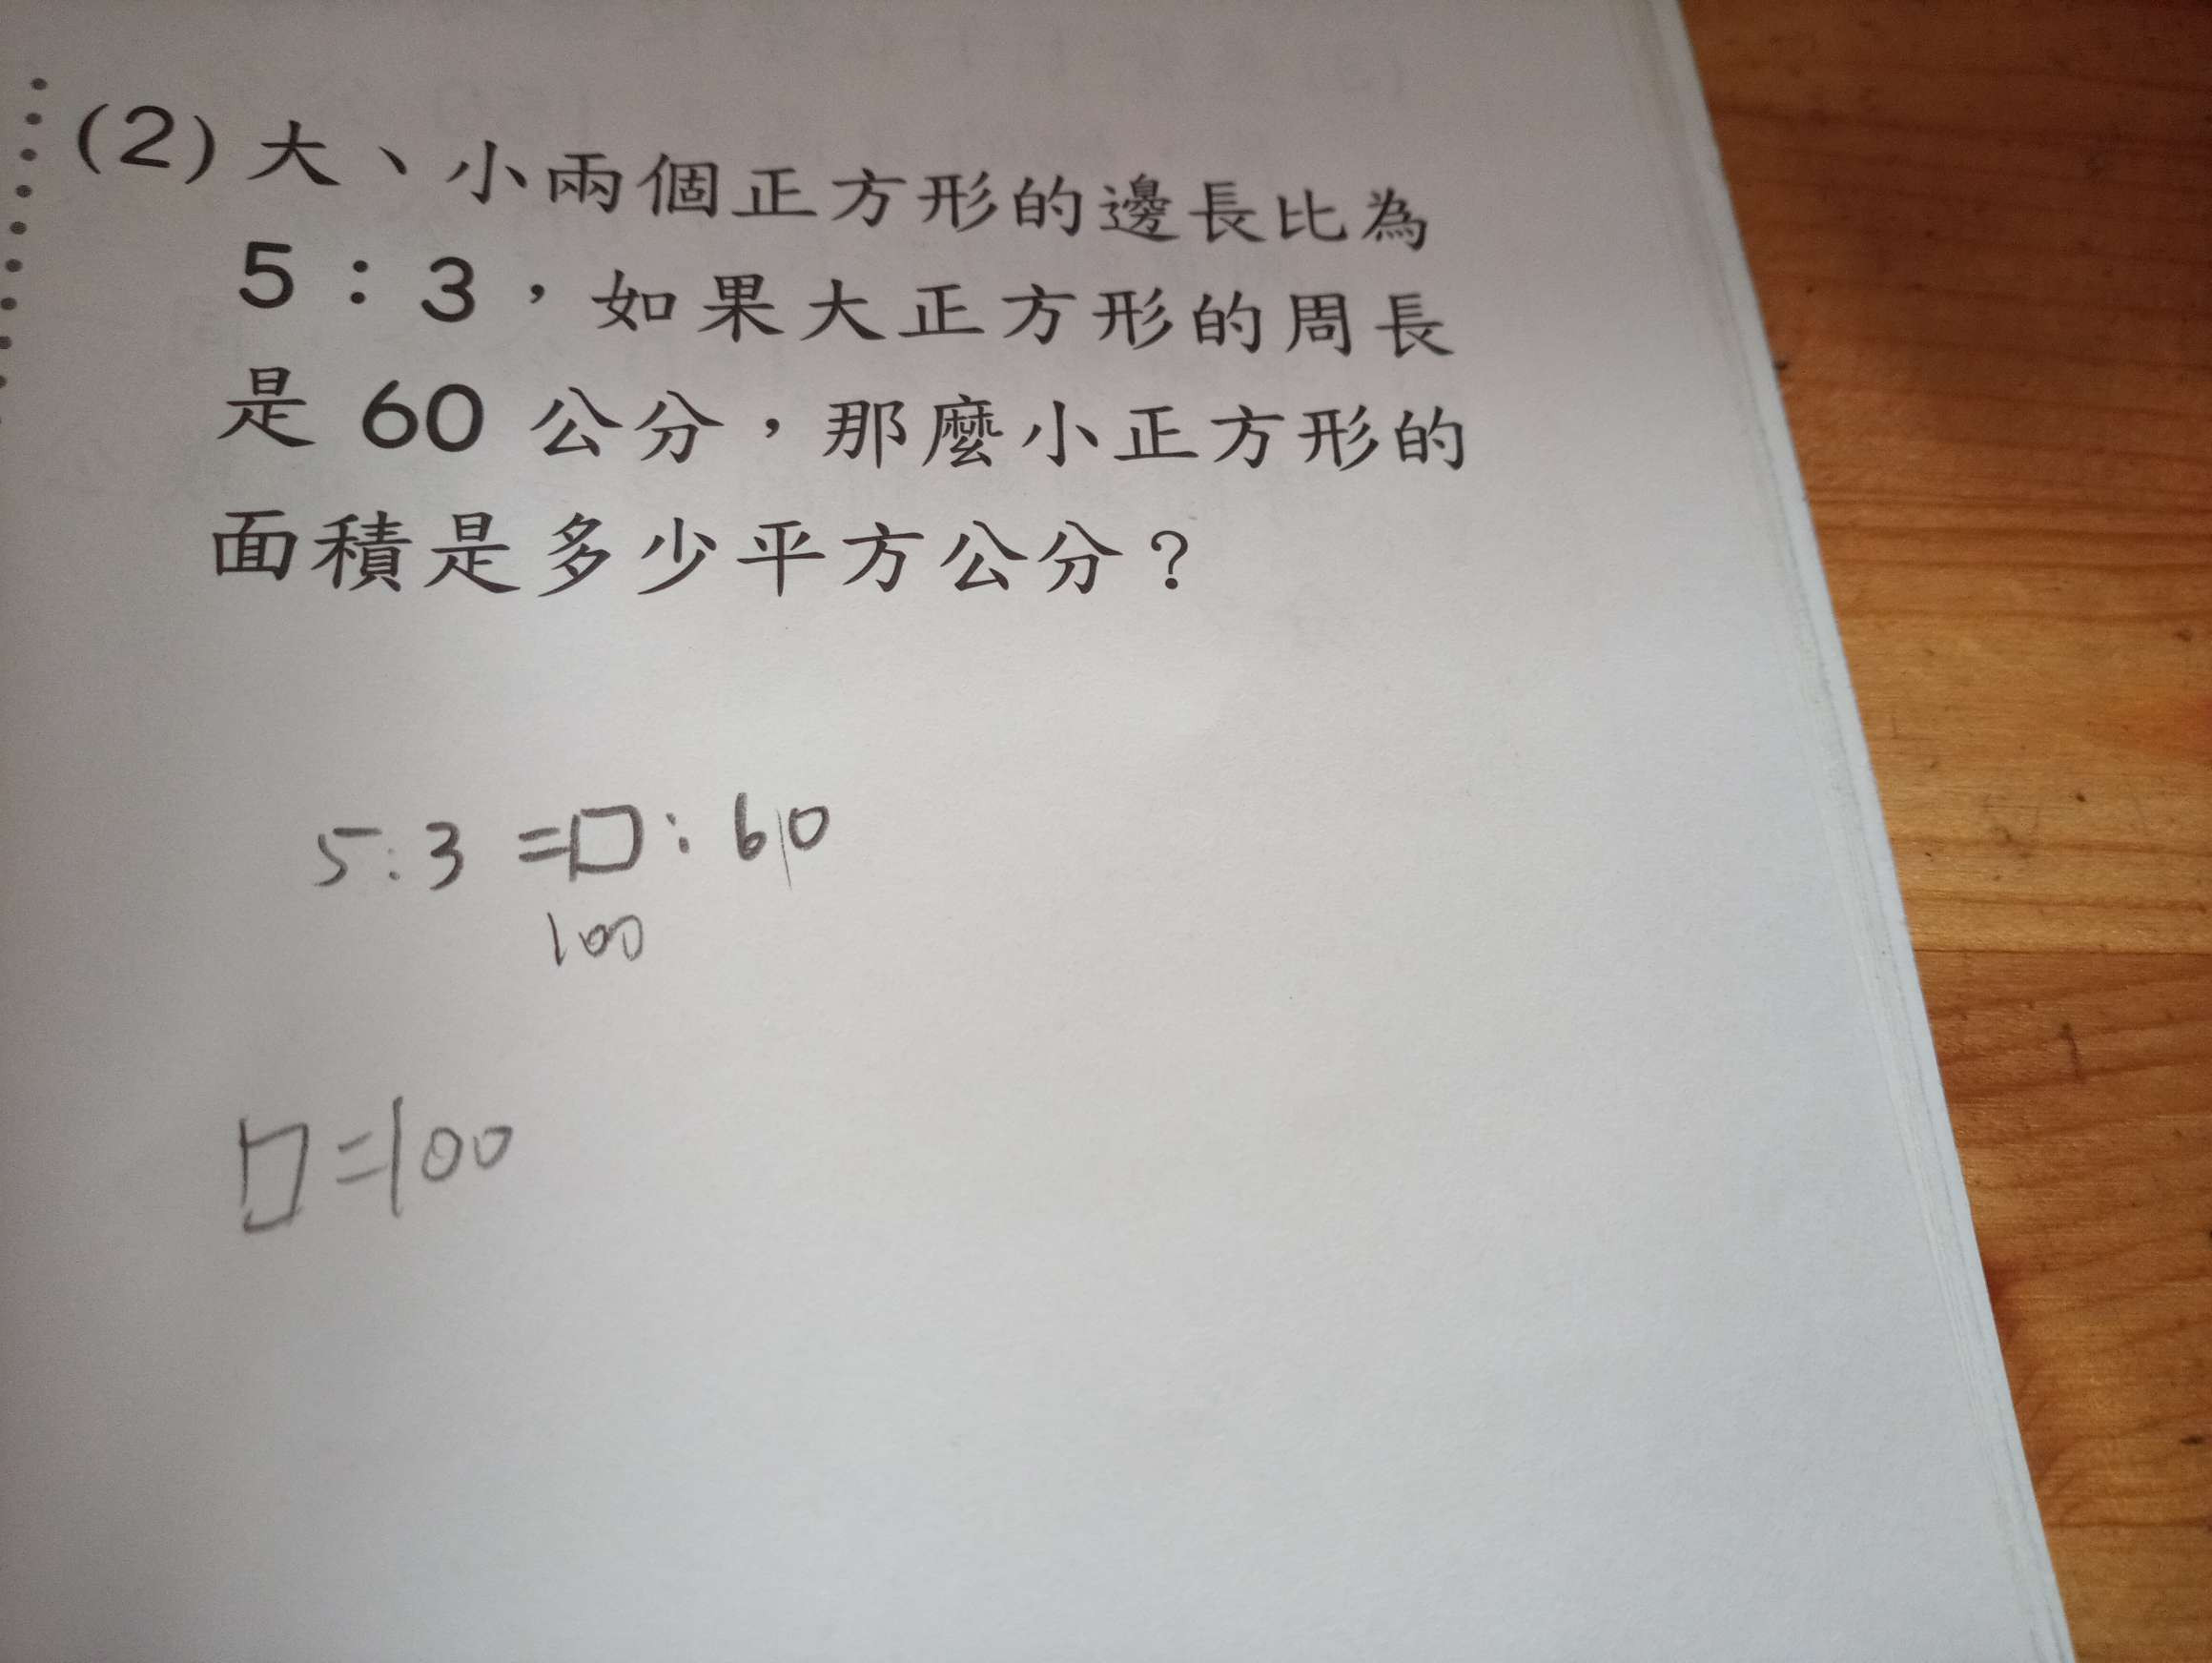 (2) 大、小兩個正方形的邊長比為
5：3，如果大正方形的周長
是 60 公分，那麼小正方形的
面積是多少平方公分？
5:3=□:60
100
□=100